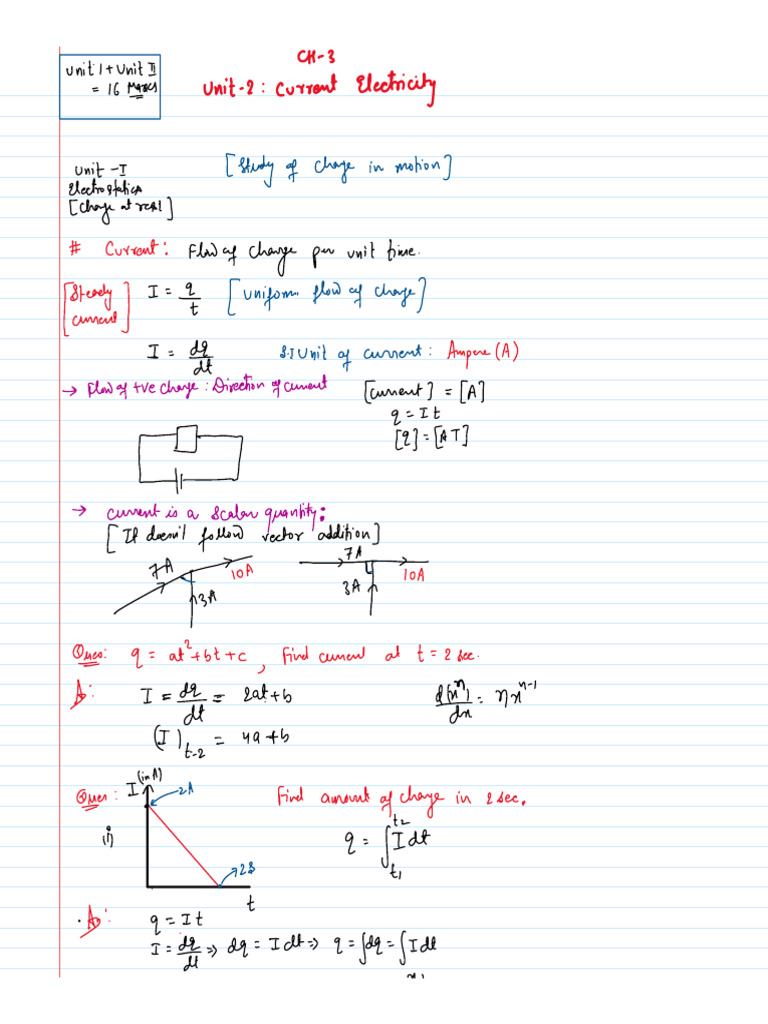 CH-3
Unit-2: Current Electricity
Unit I + Unit II
= 16 Marks
[Study of Charge in motion]
Unit - I
Electrostatics
[Charge at rest]
# Current: Flow of Charge per unit time.
[Steady current] I = q/t [Uniform flow of charge]
I = dq/dt S.I Unit of current: Ampere (A)
→ Flow of +ve charge: Direction of current
[current] = [A]
q = It
[q] = [AT]
→ current is a scalar quantity:
[It doesn't follow vector addition]
7A 10A 3A
7A 10A 3A
Ques: q = at²+bt+c, Find current at t = 2 sec.
A: I = dq/dt = 2at+b
d(xⁿ)/dx = nxⁿ⁻¹
(I)t-2 = 4a+b
Ques: Find amount of charge in 2 sec.
I (in A)
2A
(i)
q = ∫ I dt
t2
t1
2S
t
A: q = It
I = dq/dt ⇒ dq = I dt ⇒ q = ∫dq = ∫I dt